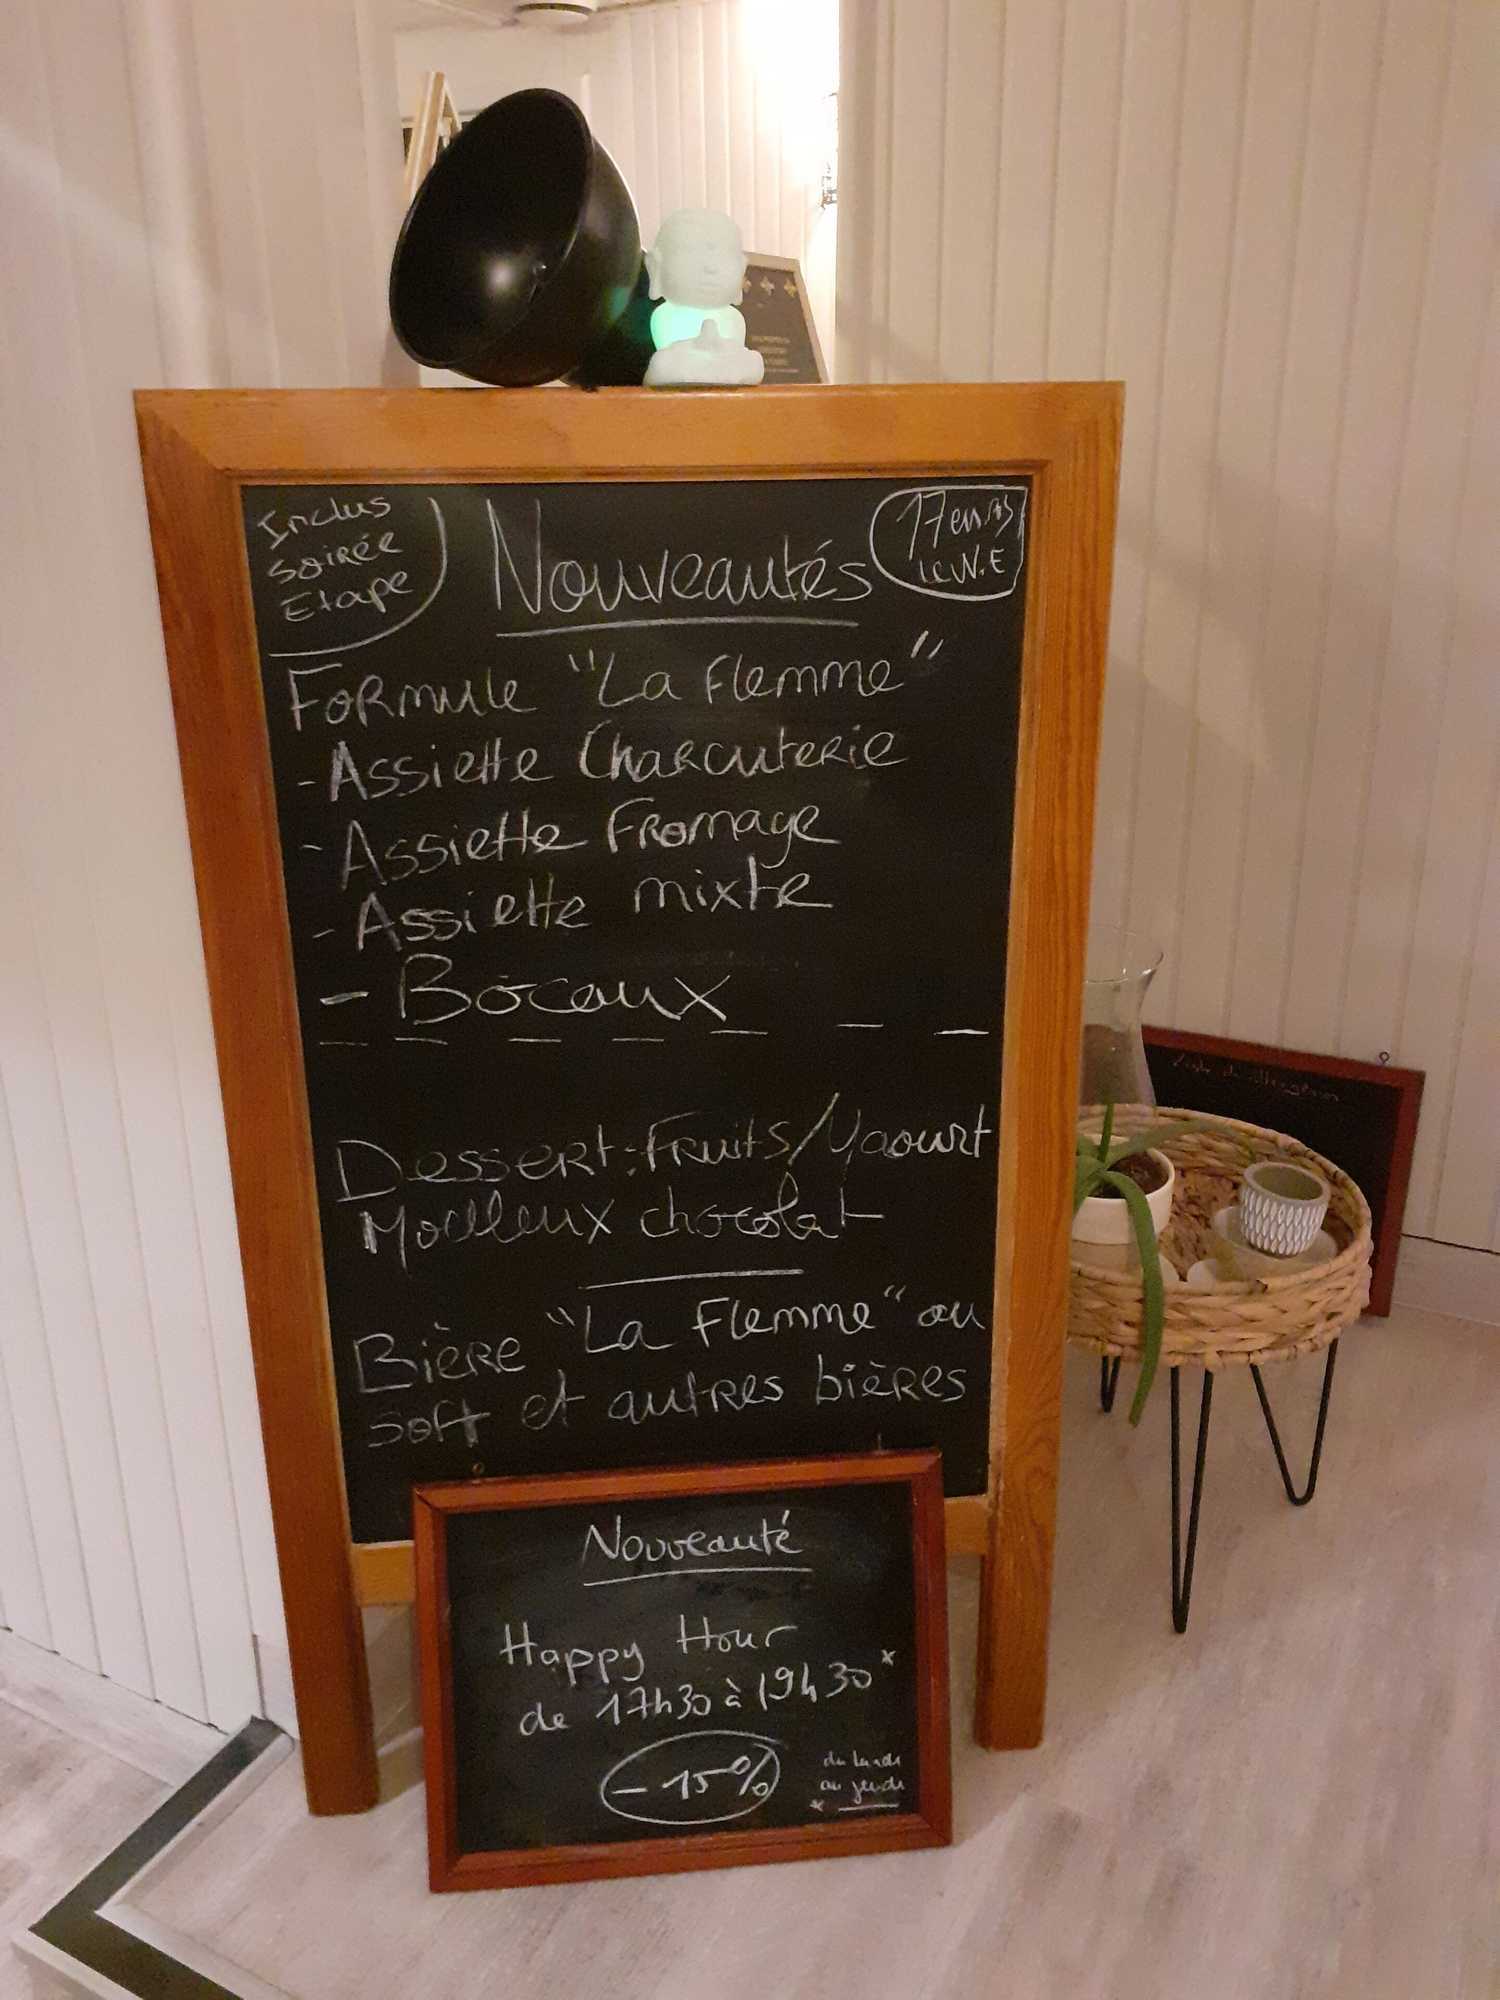 Inclus
Soirée
Etape
Nouveautés
17 euros
le W.E
Formule "La Flemme"
- Assiette Charcuterie
- Assiette Fromage
- Assiette mixte
- Bocaux
Dessert : Fruits/Yaourt
Moelleux chocolat
Bière "La Flemme" ou
soft et autres bières
Nouveauté
Happy Hour
de 17h30 à 19h30*
- 15%
du lundi
au jeudi
*